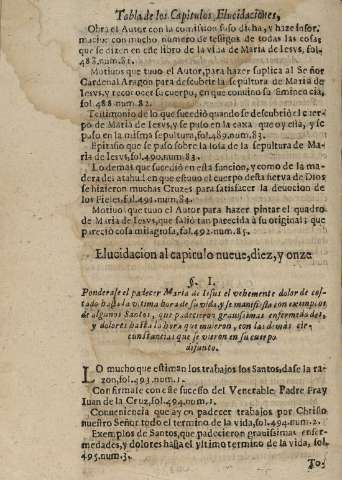 Tabla de los Capitulos, Elucidaciones,
Obra el Autor con la comission suso dicha, y haze infor,
macion con mucho numero de testigos de todas las cosas
que se dizen en este libro de la vida de Maria de Iesvs, fol.
488.num.81.
Motiuos que tuuo el Autor, para hazer suplica al Señor
Cardenal Aragon para descubrir la sepultura de Maria de
Iesvs, y reconocer su cuerpo, en que convino su Eminencia,
fol.488.num.82.
Testimonio de lo que sucediò quando se descubriò el cuer-
po de Maria de Iesvs, y se puso en la caxa que oy està, y se
puso en la misma sepultura, fol.489.num.83.
Epitafio que se puso sobre la losa de la sepultura de Ma-
ria de Iesvs, fol.490.num.83.
Lo demas que sucediò en esta funcion, y como de la ma
dera del atahud en que estuuo el cuerpo desta sierva de Dios
se hizieron muchas Cruzes para satisfacer la deuocion de
los Fieles, fol.491.num.84.
Motiuos que tuuo el Autor para hazer pintar el quadro
de Maria de Iesvs, que saliò tan parecida à su original; que
pareciò cosa milagrosa, fol.492.num.85.
Elucidacion al capitulo nueue, diez, y onze
§. I.
Ponderase el padecer Maria de Iesus el vehemente dolor de cos-
tado hasta la vltima hora de su vida, se manifiesta con exemplos
de algunos Santos, que padecieron grauissimas enfermedades,
y dolores hasta la hora que murieron, con las demàs cir-
cunstancias que se vieron en su cuerpo
difunto.
LO mucho que estiman los trabajos los Santos, dase la ra-
zon, fol.493.num.1.
Confirmase con este sucesso del Venerable Padre Fray
Iuan de la Cruz, fol.494.num.1.
Conueniencia que ay en padecer trabajos por Christo
nuestro Señor todo el termino de la vida, fol.494.num.2.
Exemplos de Santos, que padecieron grauissimas enfer-
medades, y dolores hasta el vltimo termino de la vida, fol.
495.num.3.
To-